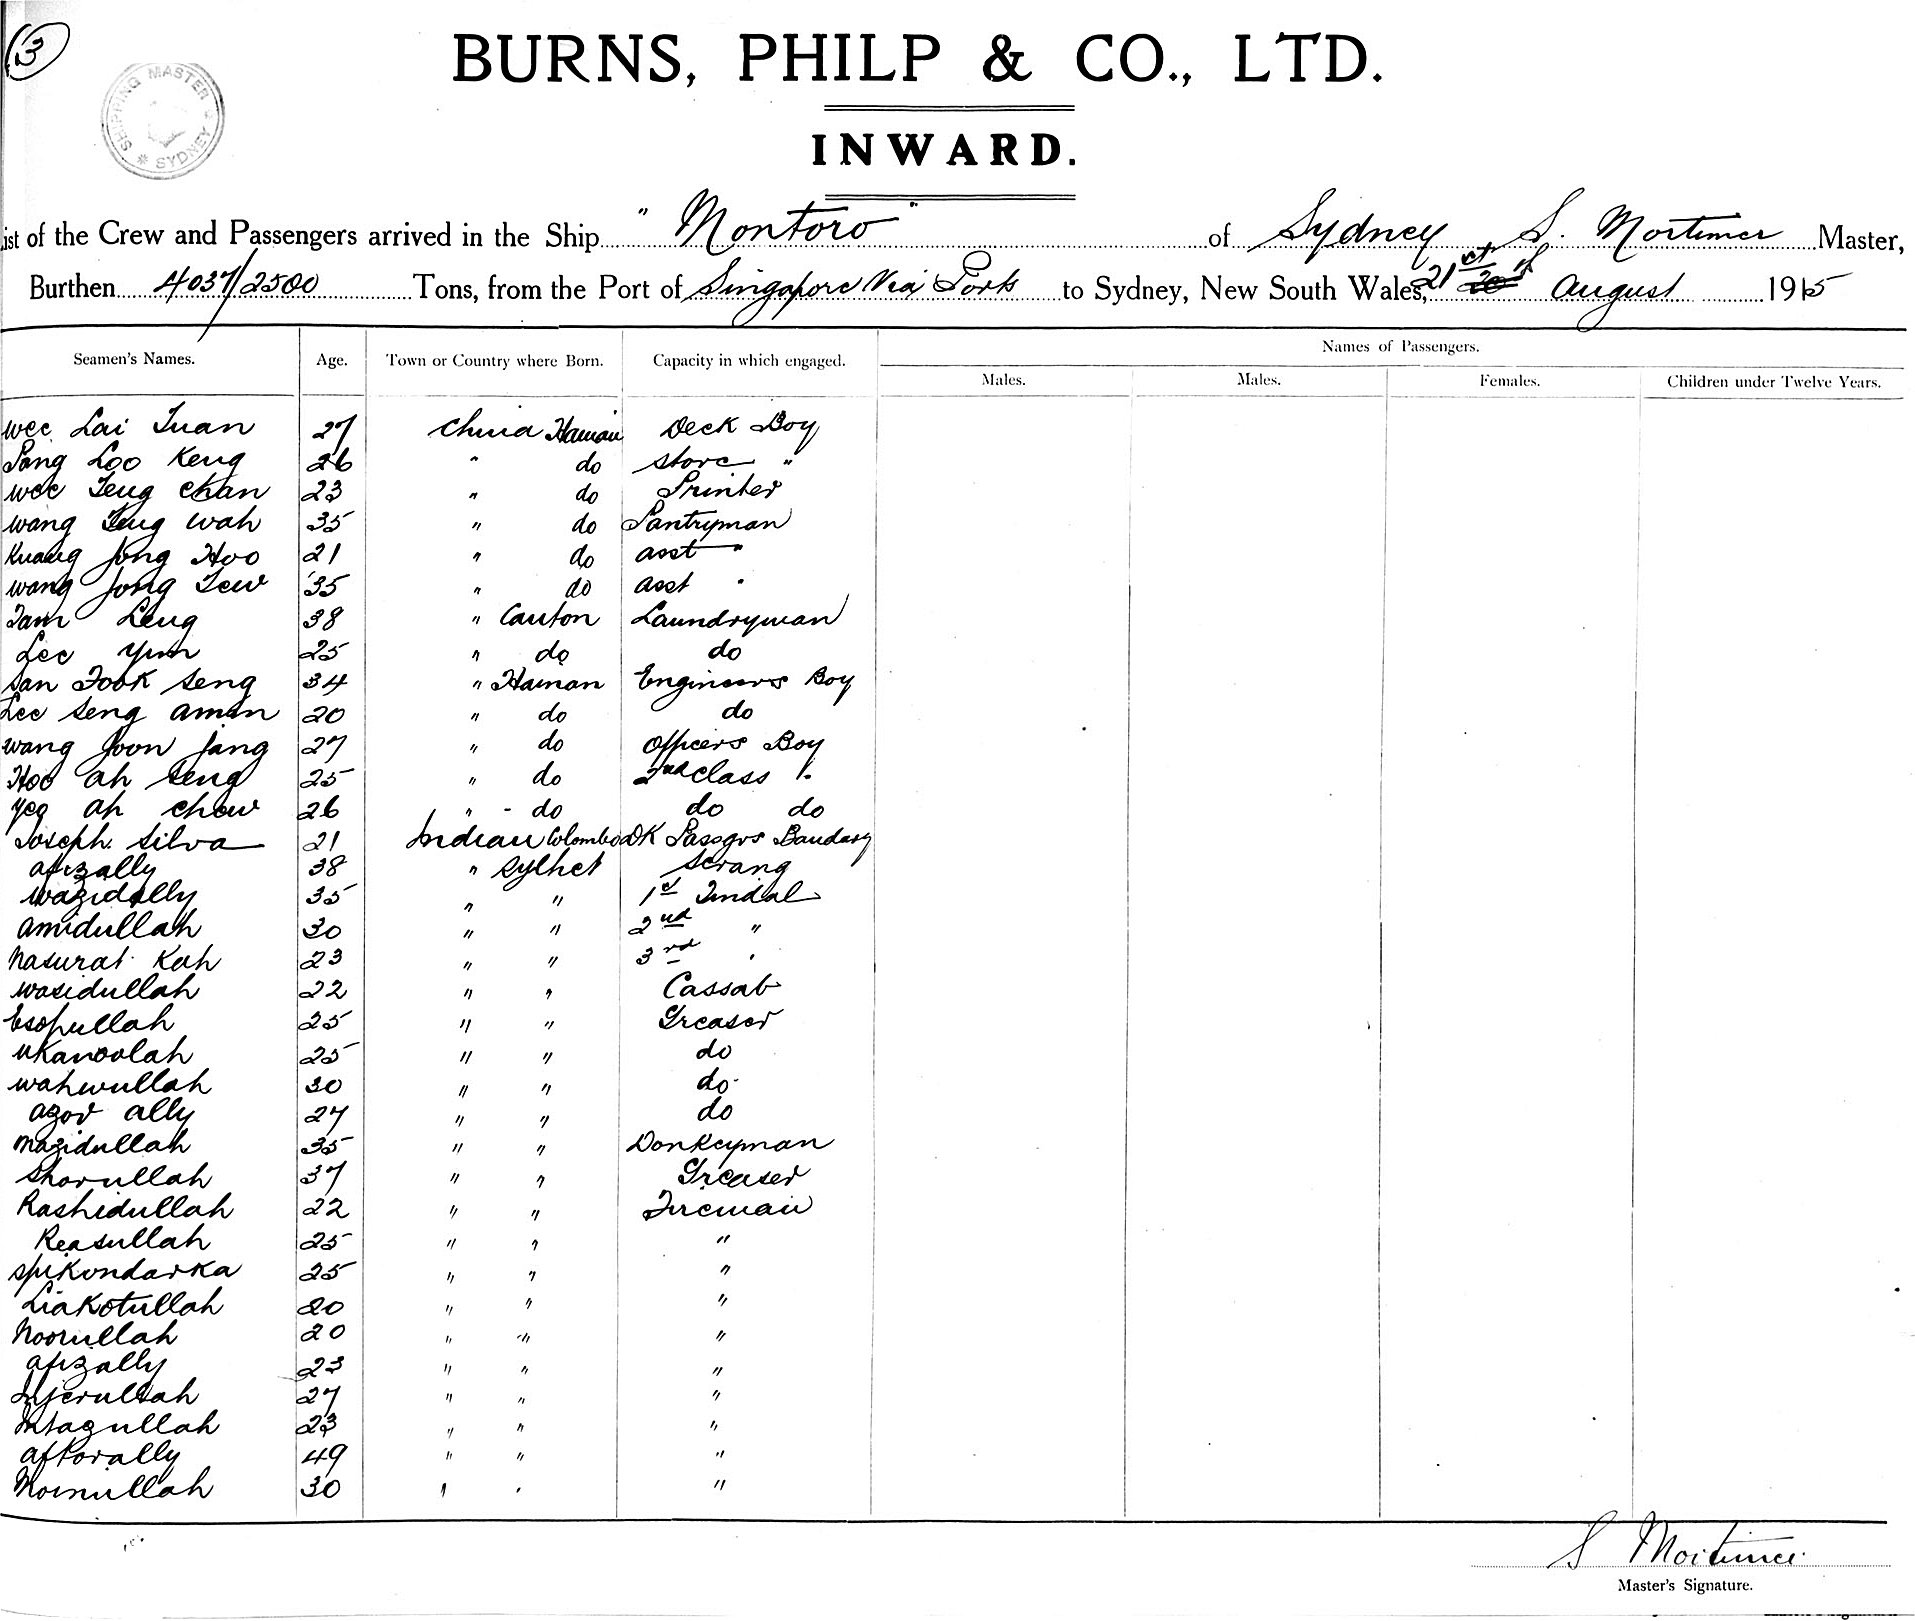 3
SHIPPING MASTER * SYDNEY *
BURNS, PHILP & CO., LTD.
INWARD.
ist of the Crew and Passengers arrived in the Ship "Montoro" of Sydney S. Mortimer Master,
Burthen 4037/2500 Tons, from the Port of Singapore Via Ports to Sydney, New South Wales, 21st 20th August 1915
Seamen's Names. Age. Town or Country where Born. Capacity in which engaged. Names of Passengers.
Males. Males. Females. Children under Twelve Years.
Wee Lai Tuan 27 China Hainan Deck Boy
Pang Loo Keng 26 " do Store "
Wee Teng Chan 23 " do Printer
Wang Teng Wah 35 " do Pantryman
Kuang Jong Hoo 21 " do asst "
Wang Jong Tew 35 " do asst "
Tam Leng 38 " Canton Laundryman
Lee Yum 25 " do do
San Fook Seng 34 " Hainan Engineers Boy
Lee Seng Amin 20 " do do
Wang Joon Jang 27 " do Officers Boy
Hoo Ah Seng 25 " do 2nd Class "
Yeo Ah Chow 26 " - do do do
Joseph Silva 21 Indian Colombo DK Passgrs Bandary
Afizally 38 " Sylhet Serang
Wazidally 35 " " 1st Tindal
Amidullah 30 " " 2nd "
Nasurat Kah 23 " " 3rd "
Wasidullah 22 " " Cassab
Esopullah 25 " " Greaser
Ukanoolah 25 " " do
Wahwullah 30 " " do
Azov Ally 27 " " do
Mazidullah 35 " " Donkeyman
Shorullah 37 " " Greaser
Rashidullah 22 " " Fireman
Reasullah 25 " " "
Spikondarka 25 " " "
Liakotullah 20 " " "
Noorullah 20 " " "
Afizally 23 " " "
27 " " "
Mtazullah 23 " " "
Aftorally 49 " " "
Moinullah 30 " " "
S Mortimer
Master's Signature.